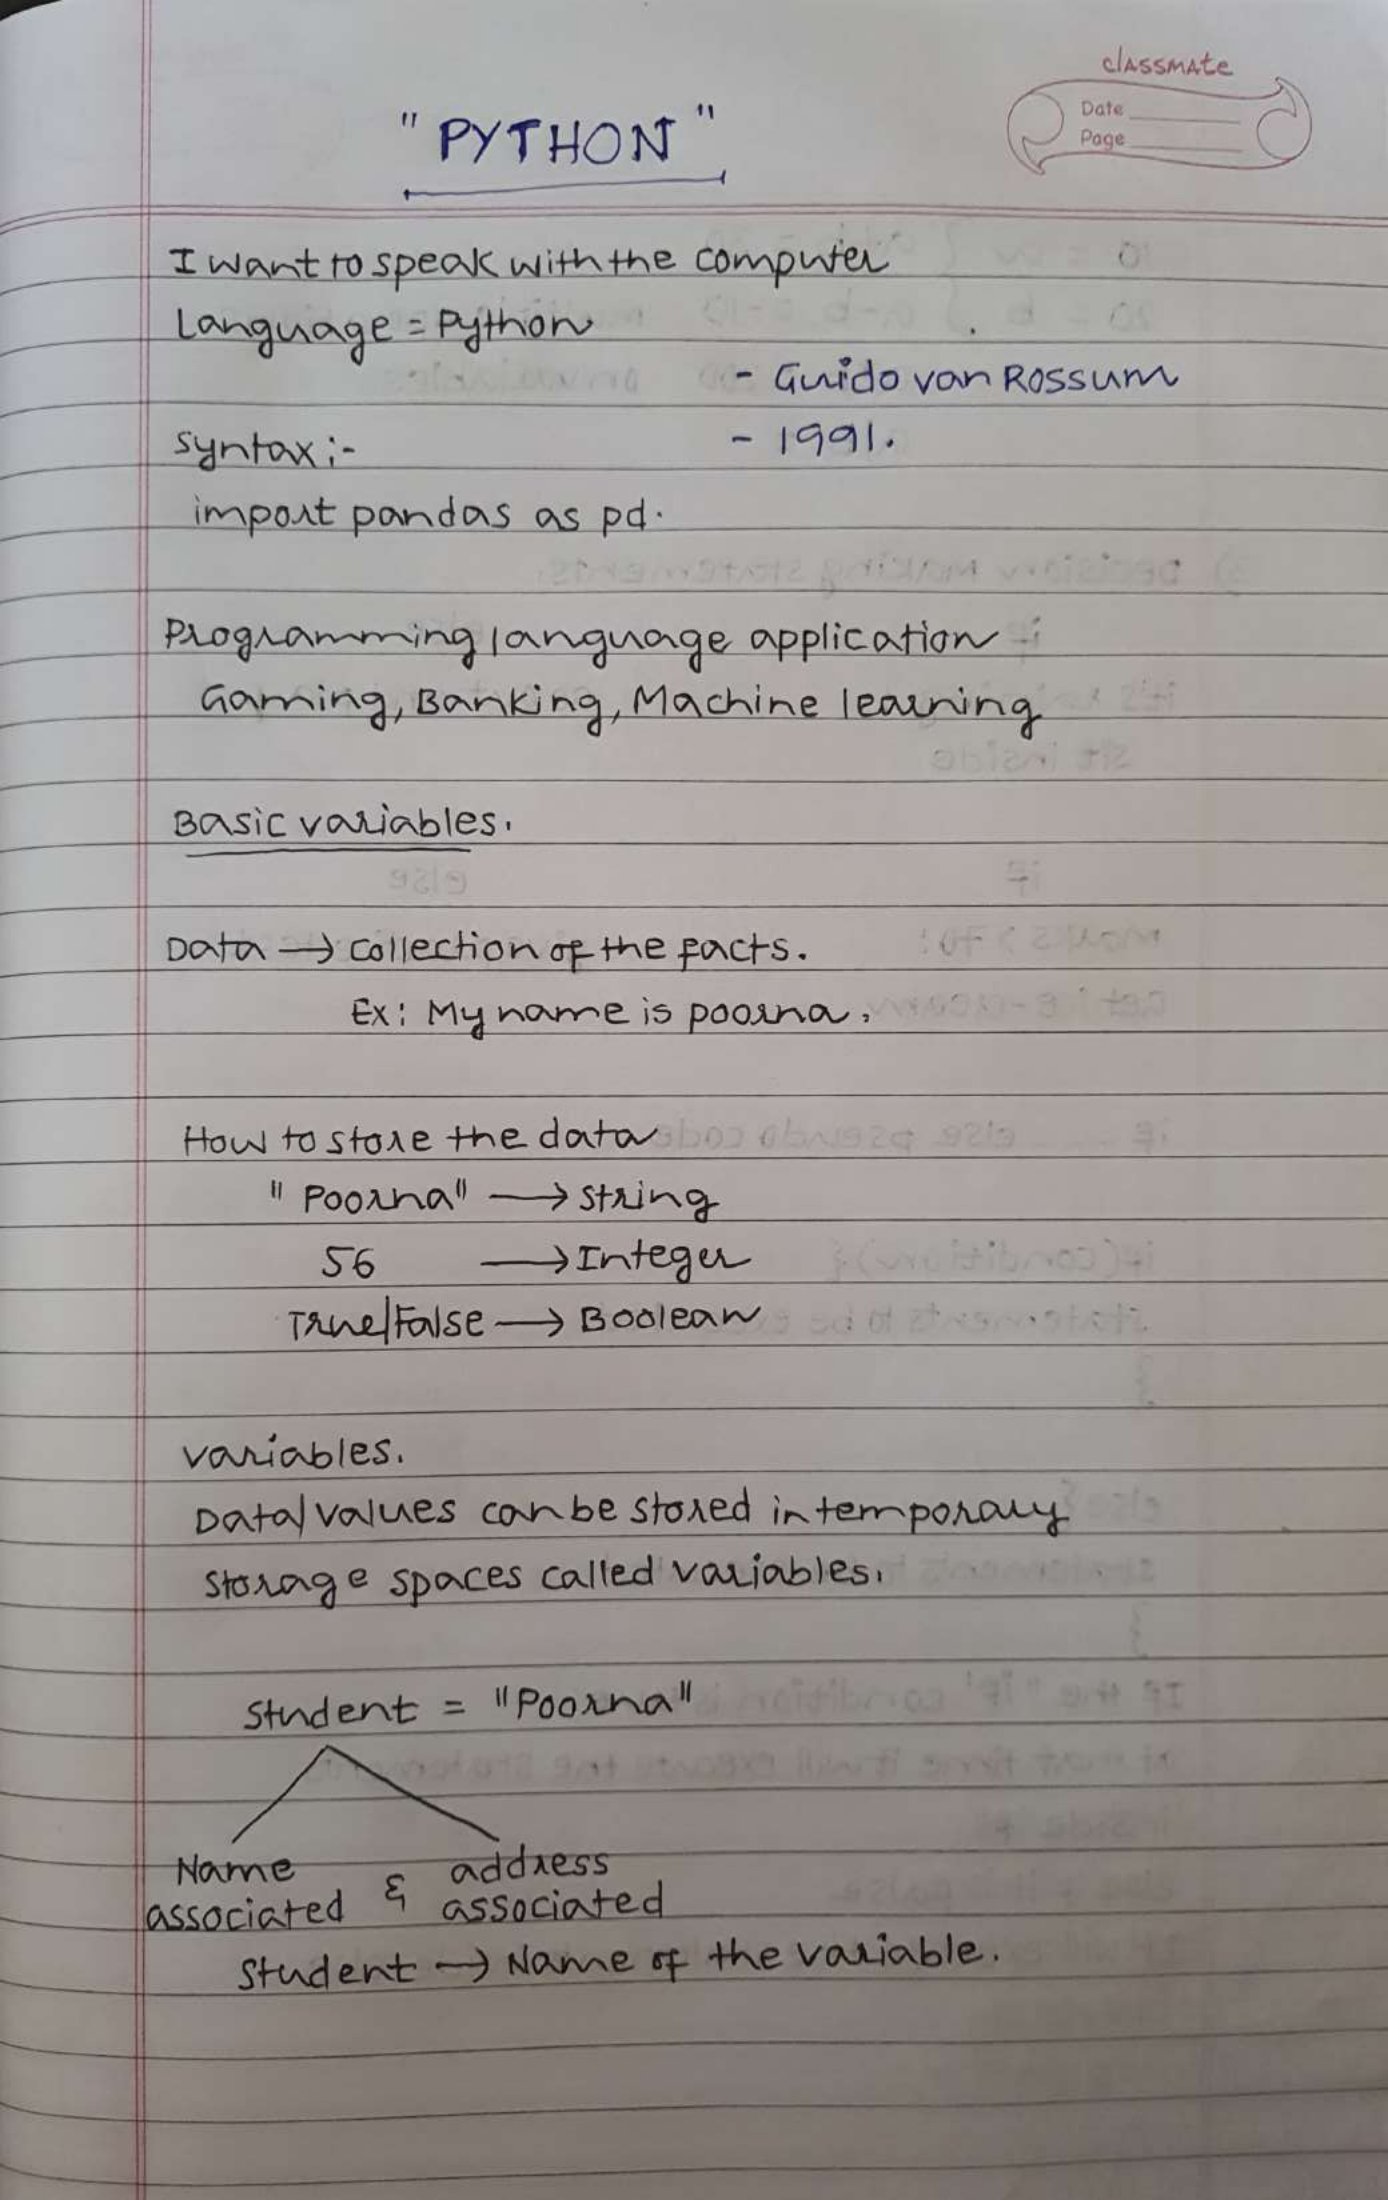 classmate
Date
Page
"PYTHON"
I want to speak with the computer
Language = Python
- Guido van Rossum
- 1991.
Syntax :-
import pandas as pd.
Programming language application
Gaming, Banking, Machine learning
Basic variables.
Data → collection of the facts.
Ex: My name is poorna.
How to store the data
"Poorna" → String
56 → Integer
True/False → Boolean
variables.
Data/values can be stored in temporary
storage spaces called variables.
Student = "Poorna"
Name & address
associated associated
Student → Name of the variable.